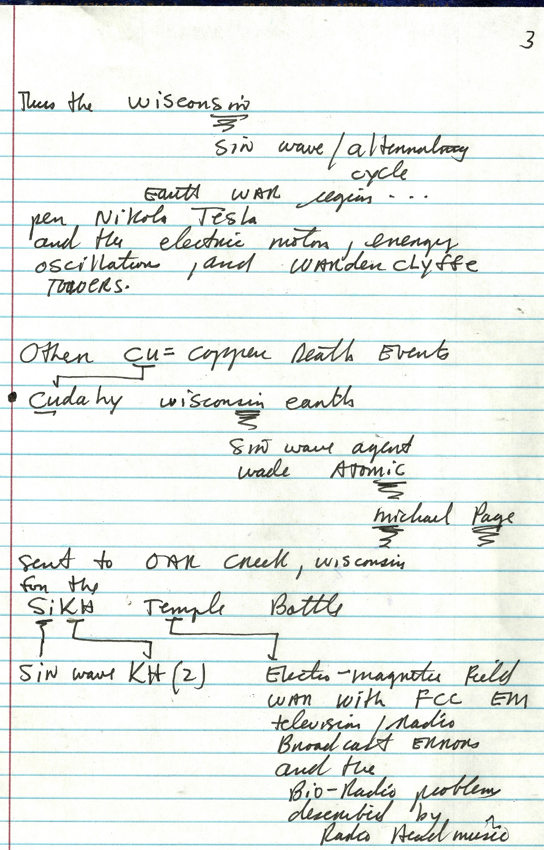 3
Thus the wisconsin
sin wave / alternating
cycle
Earth WAR region ...
pen Nikola Tesla
and the electric motor, energy
oscillations, and WARdenclyffe
TOWERS.
Other Cu = copper Death Events
• Cudahy wisconsin earth
Sin wave agent
wade Atomic
michael Page
sent to OAK Creek, wisconsin
for the
SiKH Temple Battle
Sin wave KH (2) Electro-magnetic Field
WAR with FCC EM
television / radio
Broadcast ERRORS
and the
Bio-Radio problem
described by
Radio Head music